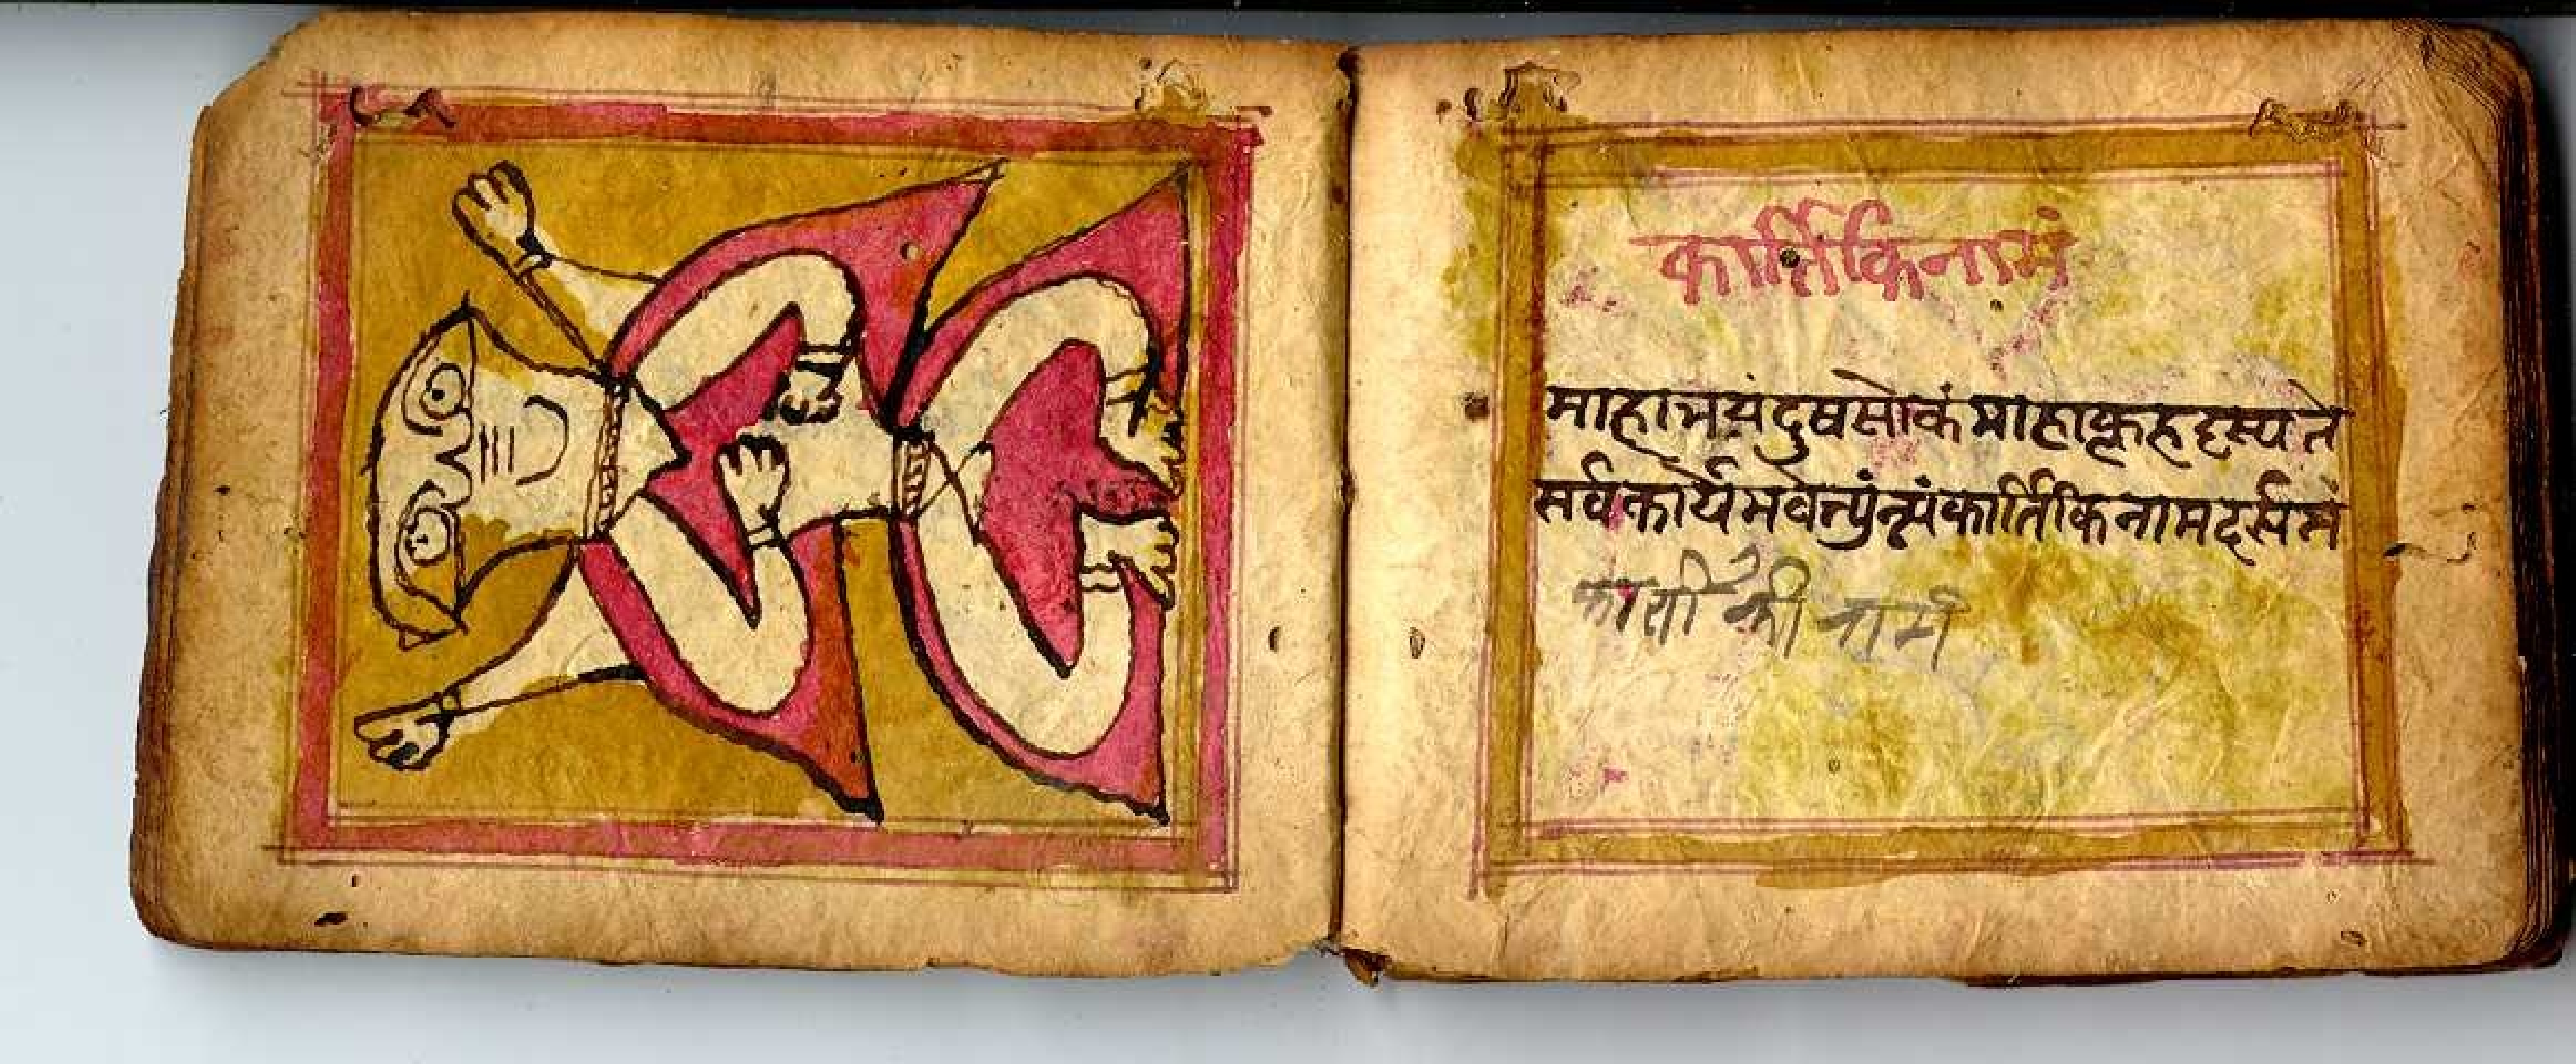 कार्तिकिनामं
माहाभयंदुषसोकंमाहाकृहदृस्यते
सर्वकार्यभवेत्पुंन्यंकार्तिकिनामदर्सनं
कार्ती की नामं